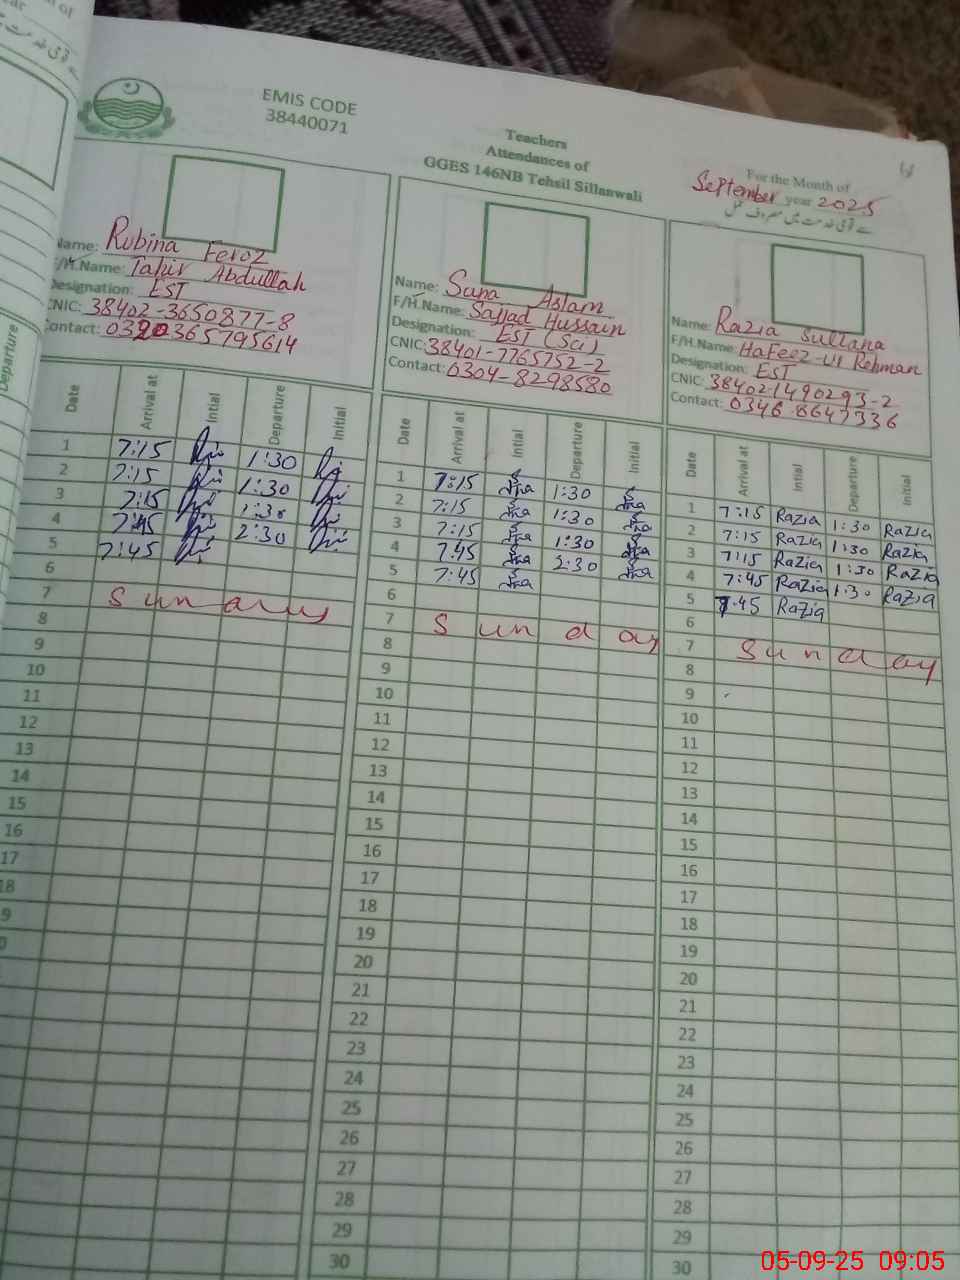 EMIS CODE
38440071
Teachers
Attendances of
GGES 146NB Tehsil Sillanwali
For the Month of
September year 2025
Name: Rubina Feroz
F/H.Name: Tahir Abdullah
Designation: EST
CNIC: 38402-3650877-8
Contact:
Date Arrival at Intial Departure Initial
1 7:15 1:30
2 7:15 1:30
3 7:15 1:30
4 7:45 2:30
5 7:45
6
7 Sunday
8
9
10
11
12
13
14
15
16
17
18
Name: Aslam
F/H.Name: Sajjad Hussain
Designation: EST (Sci)
CNIC: 38401-7765752-2
Contact: 0304-8298580
Date Arrival at Intial Departure Initial
1 7:15 1:30
2 7:15 1:30
3 7:15 1:30
4 7:45 2:30
5 7:45
6
7 Sunday
8
9
10
11
12
13
14
15
16
17
18
19
20
21
22
23
24
25
26
27
28
29
30
Name: Razia Sultana
F/H.Name: Hafeez-Ul Rehman
Designation: EST
CNIC: 38402-1490293-2
Contact: 0346-8647336
Date Arrival at Intial Departure Initial
1 7:15 Razia 1:30 Razia
2 7:15 Razia 1:30 Razia
3 7:15 Razia 1:30 Razia
4 7:45 Razia 1:30 Razia
5 7:45 Razia
6
7 Sunday
8
9
10
11
12
13
14
15
16
17
18
19
20
21
22
23
24
25
26
27
28
29
30
Departure
05-09-25 09:05